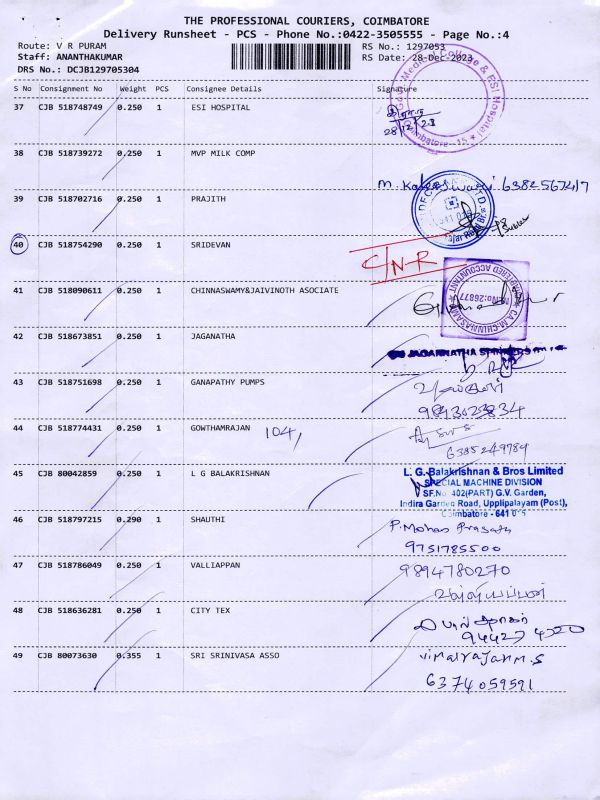 THE PROFESSIONAL COURIERS, COIMBATORE
Delivery Runsheet - PCS - Phone No.:0422-3505555 - Page No.:4
Route: V R PURAM
RS No.: 1297053
Staff: ANANTHAKUMAR
RS Date: 28-Dec-2023
DRS No.: DCJB129705304
S No Consignment No Weight PCS Consignee Details Signature
37 CJB 518748749 0.250 1 ESI HOSPITAL
Medical College & ESI Hospital
Coimbatore - 15
28/12/23
38 CJB 518739272 0.250 1 MVP MILK COMP
6382567417
39 CJB 518702716 0.250 1 PRAJITH
40 CJB 518754290 0.250 1 SRIDEVAN
C/N-R
41 CJB 518090611 0.250 1 CHINNASWAMY&JAIVINOTH ASOCIATE
CHARTERED ACCOUNTANT
M.NO:26877
CA.M.CHINNASAMY
42 CJB 518673851 0.250 1 JAGANATHA
43 CJB 518751698 0.250 1 GANAPATHY PUMPS
44 CJB 518774431 0.250 1 GOWTHAMRAJAN 104,
6385249784
45 CJB 80042859 0.250 1 L G BALAKRISHNAN
L. G. Balakrishnan & Bros Limited
SPECIAL MACHINE DIVISION
SF.No. 402(PART) G.V. Garden,
Indira Garden Road, Upplipalayam (Post),
Coimbatore - 641 015
46 CJB 518797215 0.290 1 SHAUTHI
P. Mohan Prasath
9751785500
47 CJB 518786049 0.250 1 VALLIAPPAN
9894780270
வள்ளியப்பன்
48 CJB 518636281 0.250 1 CITY TEX
49 CJB 80073630 0.355 1 SRI SRINIVASA ASSO
Vimalrajan M.S
6374059591